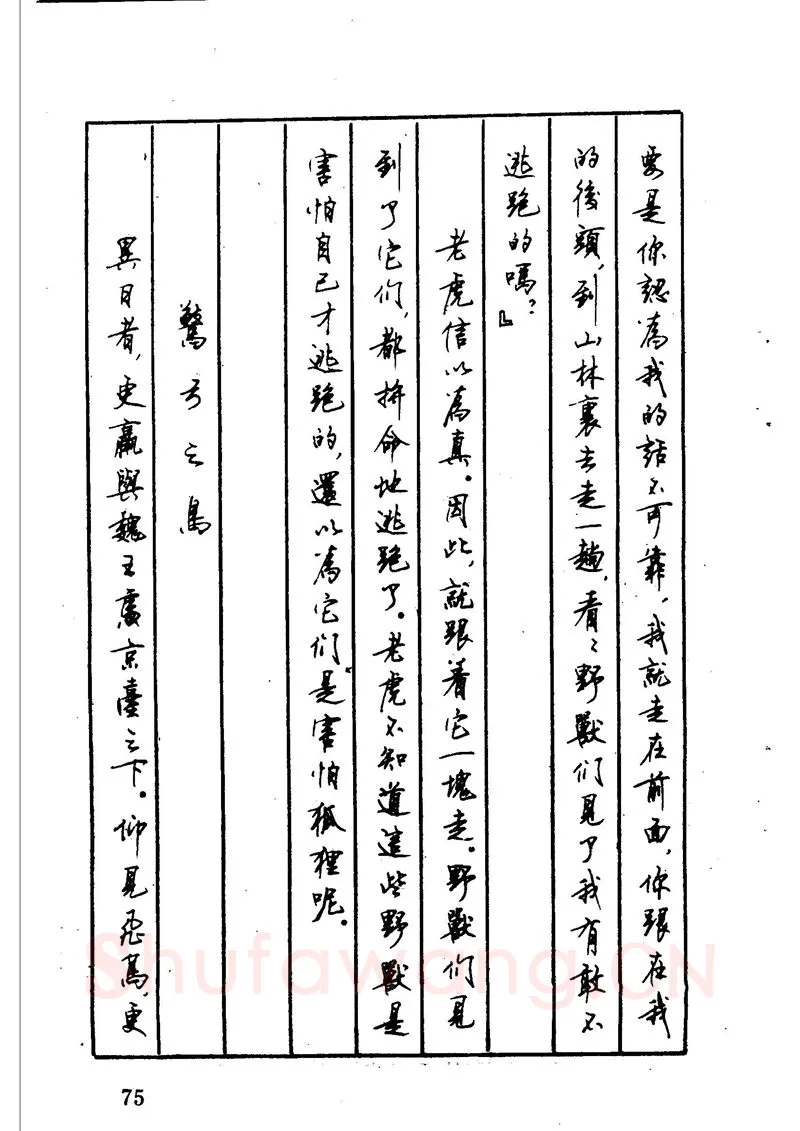 要是你認為我的話不可靠，我就走在前面，你跟在我
的後頭，到山林裏去走一趟，看〻野獸们見了我有敢不
逃跑的嗎？』
老虎信以為真。因此，就跟着它一塊走。野獸们見
到了它们，都拚命地逃跑了。老虎不知道這些野獸是
害怕自己才逃跑的，還以為它们是害怕狐狸呢。
驚弓之鳥
異日者，更羸與魏王處京臺之下。仰見飛鳥，更
75
Shufawang.CN